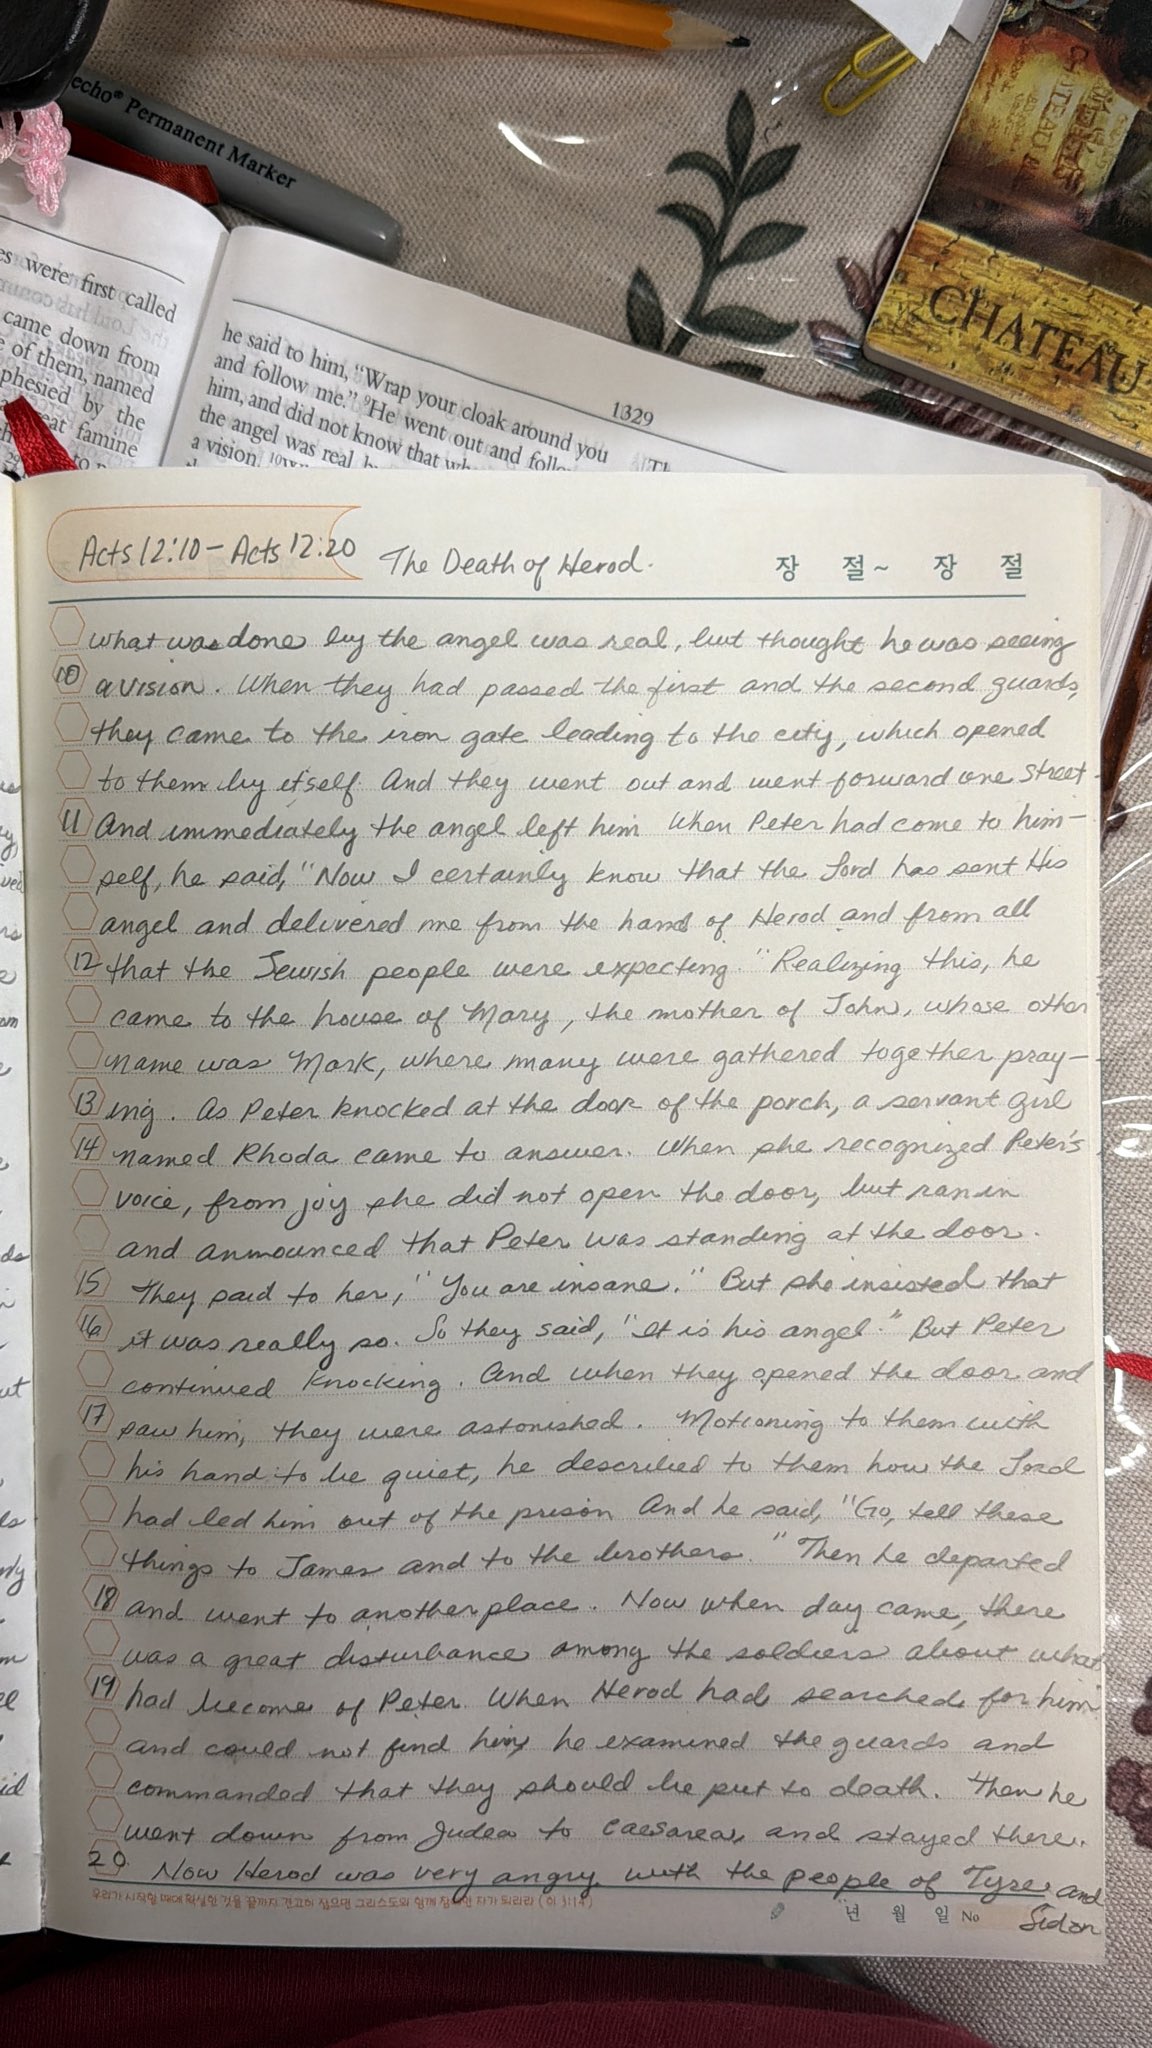 echo® Permanent Marker
CHATEAU
es were first called
came down from
e of them, named
phesied by the
eat famine
1329
he said to him, “Wrap your cloak around you
and follow me.” ⁹He went out and
him, and did not know that
the angel was real,
a vision. ¹⁰
Acts 12:10 - Acts 12:20 The Death of Herod. 장 절~ 장 절
what was done by the angel was real, but thought he was seeing
10 a vision. When they had passed the first and the second guards,
they came to the iron gate leading to the city, which opened
to them by itself. And they went out and went forward one street.
11 And immediately the angel left him When Peter had come to him-
self, he said, "Now I certainly know that the Lord has sent His
angel and delivered me from the hand of Herod and from all
12 that the Jewish people were expecting." Realizing this, he
came to the house of Mary, the mother of John, whose other
name was Mark, where many were gathered together pray-
13 ing. As Peter knocked at the door of the porch, a servant girl
14 named Rhoda came to answer. When she recognized Peter's
voice, from joy she did not open the door, but ran in
and announced that Peter was standing at the door.
15 They said to her, "You are insane." But she insisted that
16 it was really so. So they said, "It is his angel." But Peter
continued knocking. And when they opened the door and
17 saw him, they were astonished. Motioning to them with
his hand to be quiet, he described to them how the Lord
had led him out of the prison And he said, "Go, tell these
things to James and to the brothers." Then he departed
18 and went to another place. Now when day came, there
was a great disturbance among the soldiers about what
19 had become of Peter. When Herod had searched for him
and could not find him, he examined the guards and
commanded that they should be put to death. Then he
went down from Judea to Caesarea, and stayed there.
20 Now Herod was very angry with the people of Tyre and
Sidon
우리가 시작할 때에 확실한 것을 끝까지 견고히 잡으면 그리스도와 함께 참예한 자가 되리라 (히 3:14)
년 월 일 No